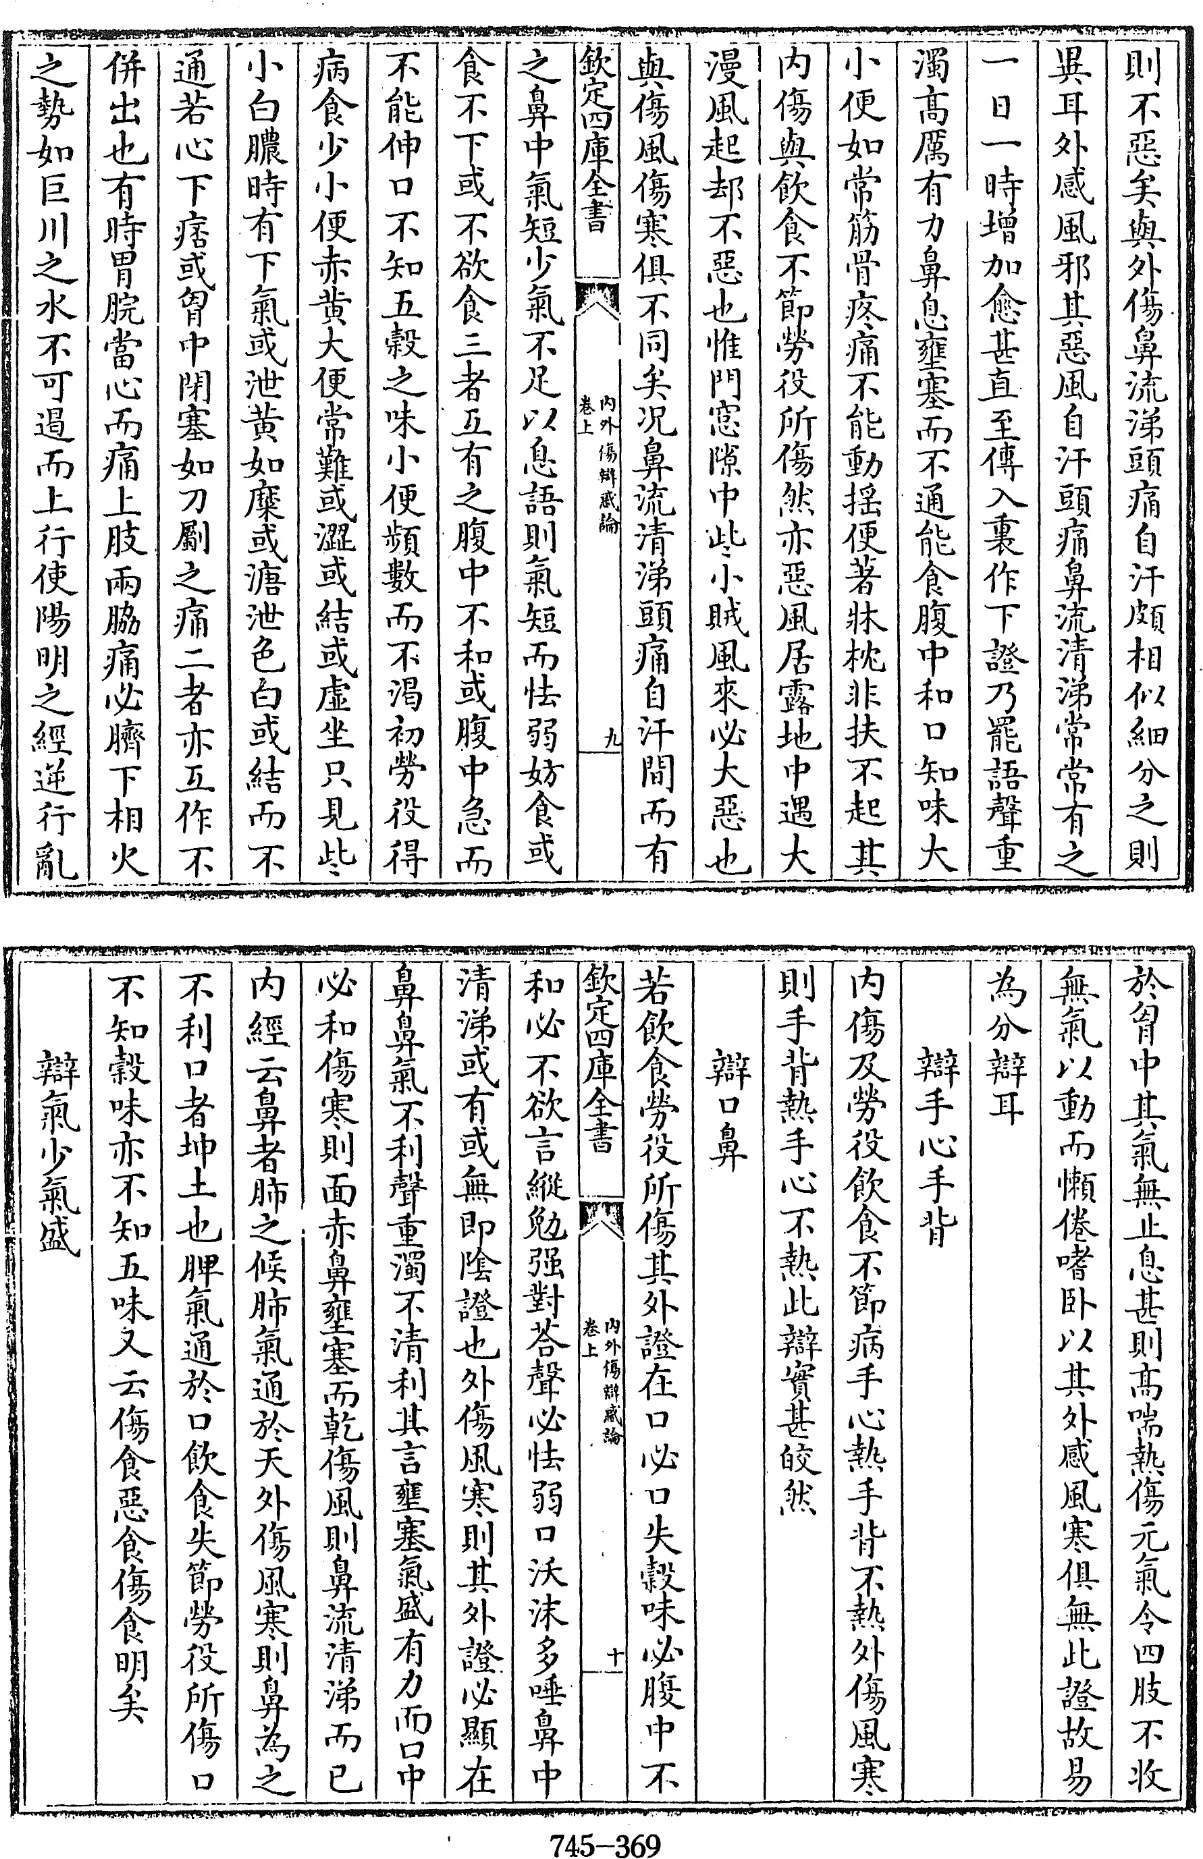 則不惡矣與外傷鼻流涕頭痛自汗頗相似細分之則
異耳外感風邪其惡風自汗頭痛鼻流清涕常常有之
一日一時增加愈甚直至傳入裏作下證乃罷語聲重
濁高厲有力鼻息壅塞而不通能食腹中和口知味大
小便如常筋骨疼痛不能動揺便著牀枕非扶不起其
内傷與飲食不節勞役所傷然亦惡風居露地中遇大
漫風起却不惡也惟門窓隙中些小賊風來必大惡也
與傷風傷寒俱不同矣况鼻流清涕頭痛自汗間而有
欽定四庫全書
内外傷辯惑論
卷上
九
之鼻中氣短少氣不足以息語則氣短而怯弱妨食或
食不下或不欲食三者互有之腹中不和或腹中急而
不能伸口不知五穀之味小便頻數而不渴初勞役得
病食少小便赤黄大便常難或澀或結或虚坐只見些
小白膿時有下氣或泄黄如糜或溏泄色白或結而不
通若心下痞或胷中閉塞如刀劚之痛二者亦互作不
併出也有時胃脘當心而痛上肢兩脇痛必臍下相火
之勢如巨川之水不可遏而上行使陽明之經逆行亂
於胷中其氣無止息甚則高喘熱傷元氣令四肢不收
無氣以動而懶倦嗜卧以其外感風寒俱無此證故易
為分辯耳
辯手心手背
内傷及勞役飲食不節病手心熱手背不熱外傷風寒
則手背熱手心不熱此辯實甚皎然
辯口鼻
若飲食勞役所傷其外證在口必口失穀味必腹中不
欽定四庫全書
内外傷辯惑論
卷上
十
和必不欲言縱勉强對荅聲必怯弱口沃沫多唾鼻中
清涕或有或無即陰證也外傷風寒則其外證必顯在
鼻鼻氣不利聲重濁不清利其言壅塞氣盛有力而口中
必和傷寒則面赤鼻壅塞而乾傷風則鼻流清涕而已
内經云鼻者肺之候肺氣通於天外傷風寒則鼻為之
不利口者坤土也脾氣通於口飲食失節勞役所傷口
不知穀味亦不知五味又云傷食惡食傷食明矣
辯氣少氣盛
745-369